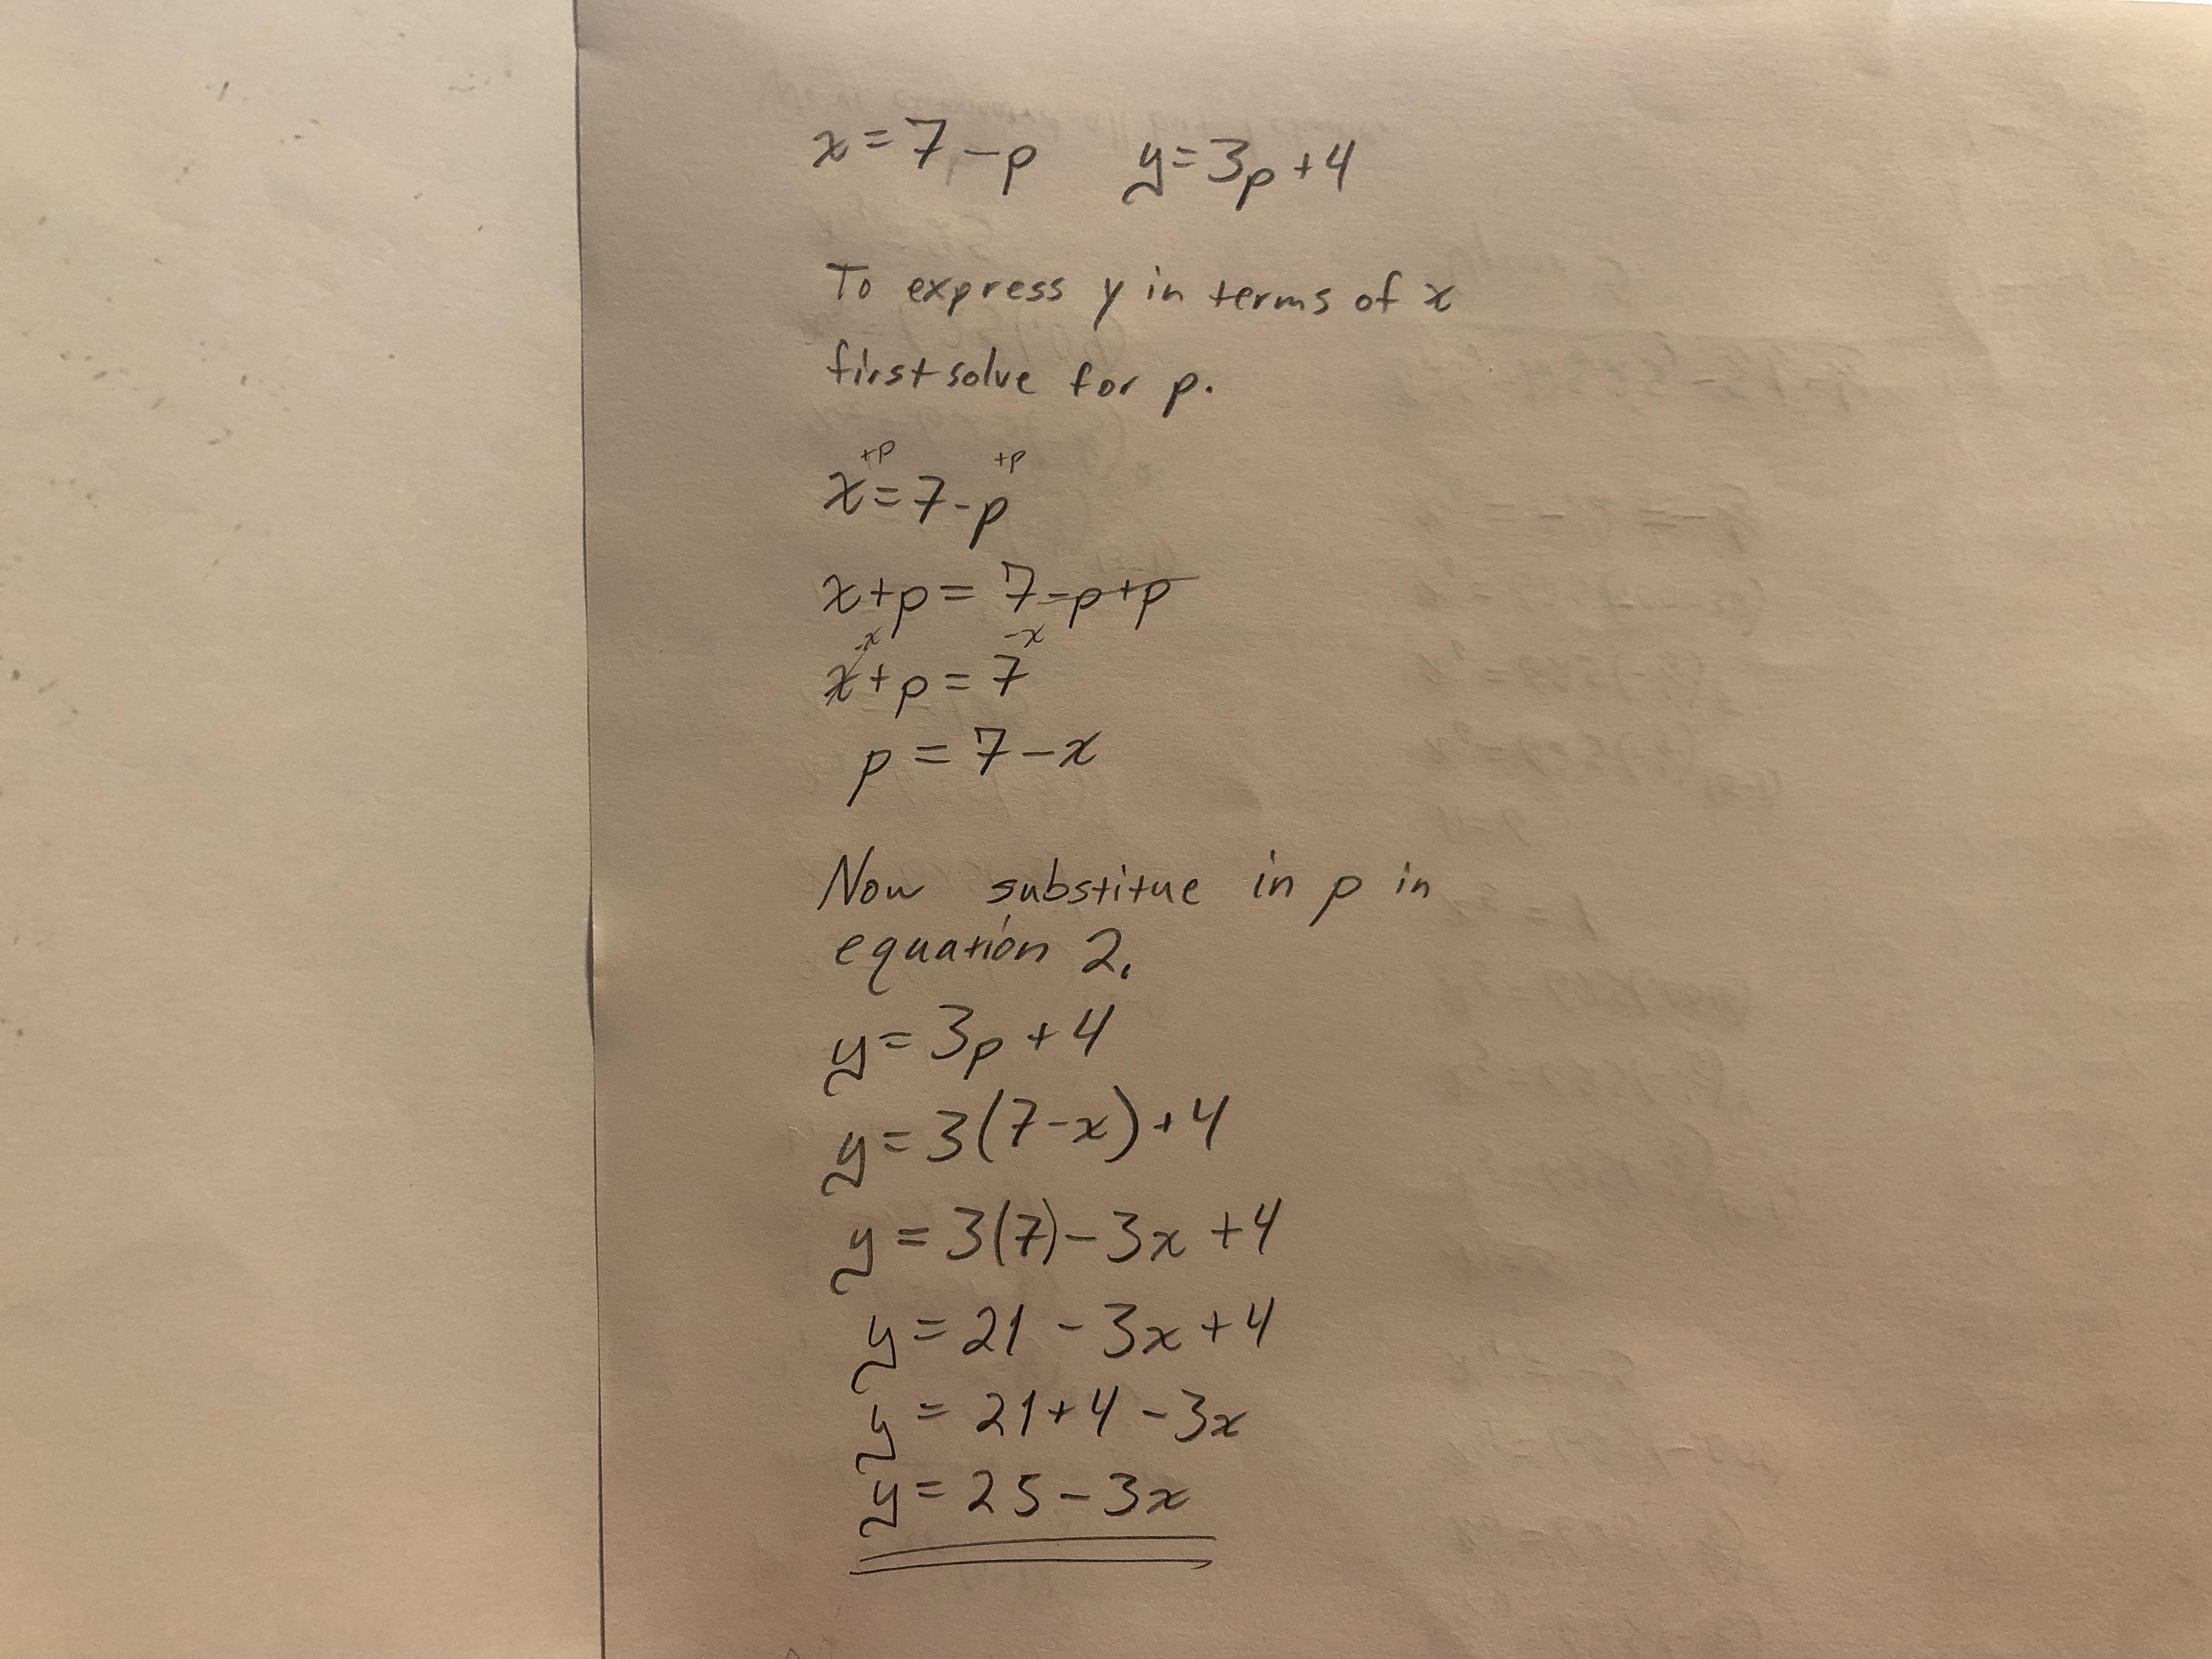 x = 7 - p    y = 3p + 4
To express y in terms of x
first solve for p.
+p +p
x = 7 - p
x + p = 7 - p + p
-x -x
x + p = 7
p = 7 - x
Now substitue in p in
equation 2.
y = 3p + 4
y = 3(7 - x) + 4
y = 3(7) - 3x + 4
y = 21 - 3x + 4
y = 21 + 4 - 3x
y = 25 - 3x